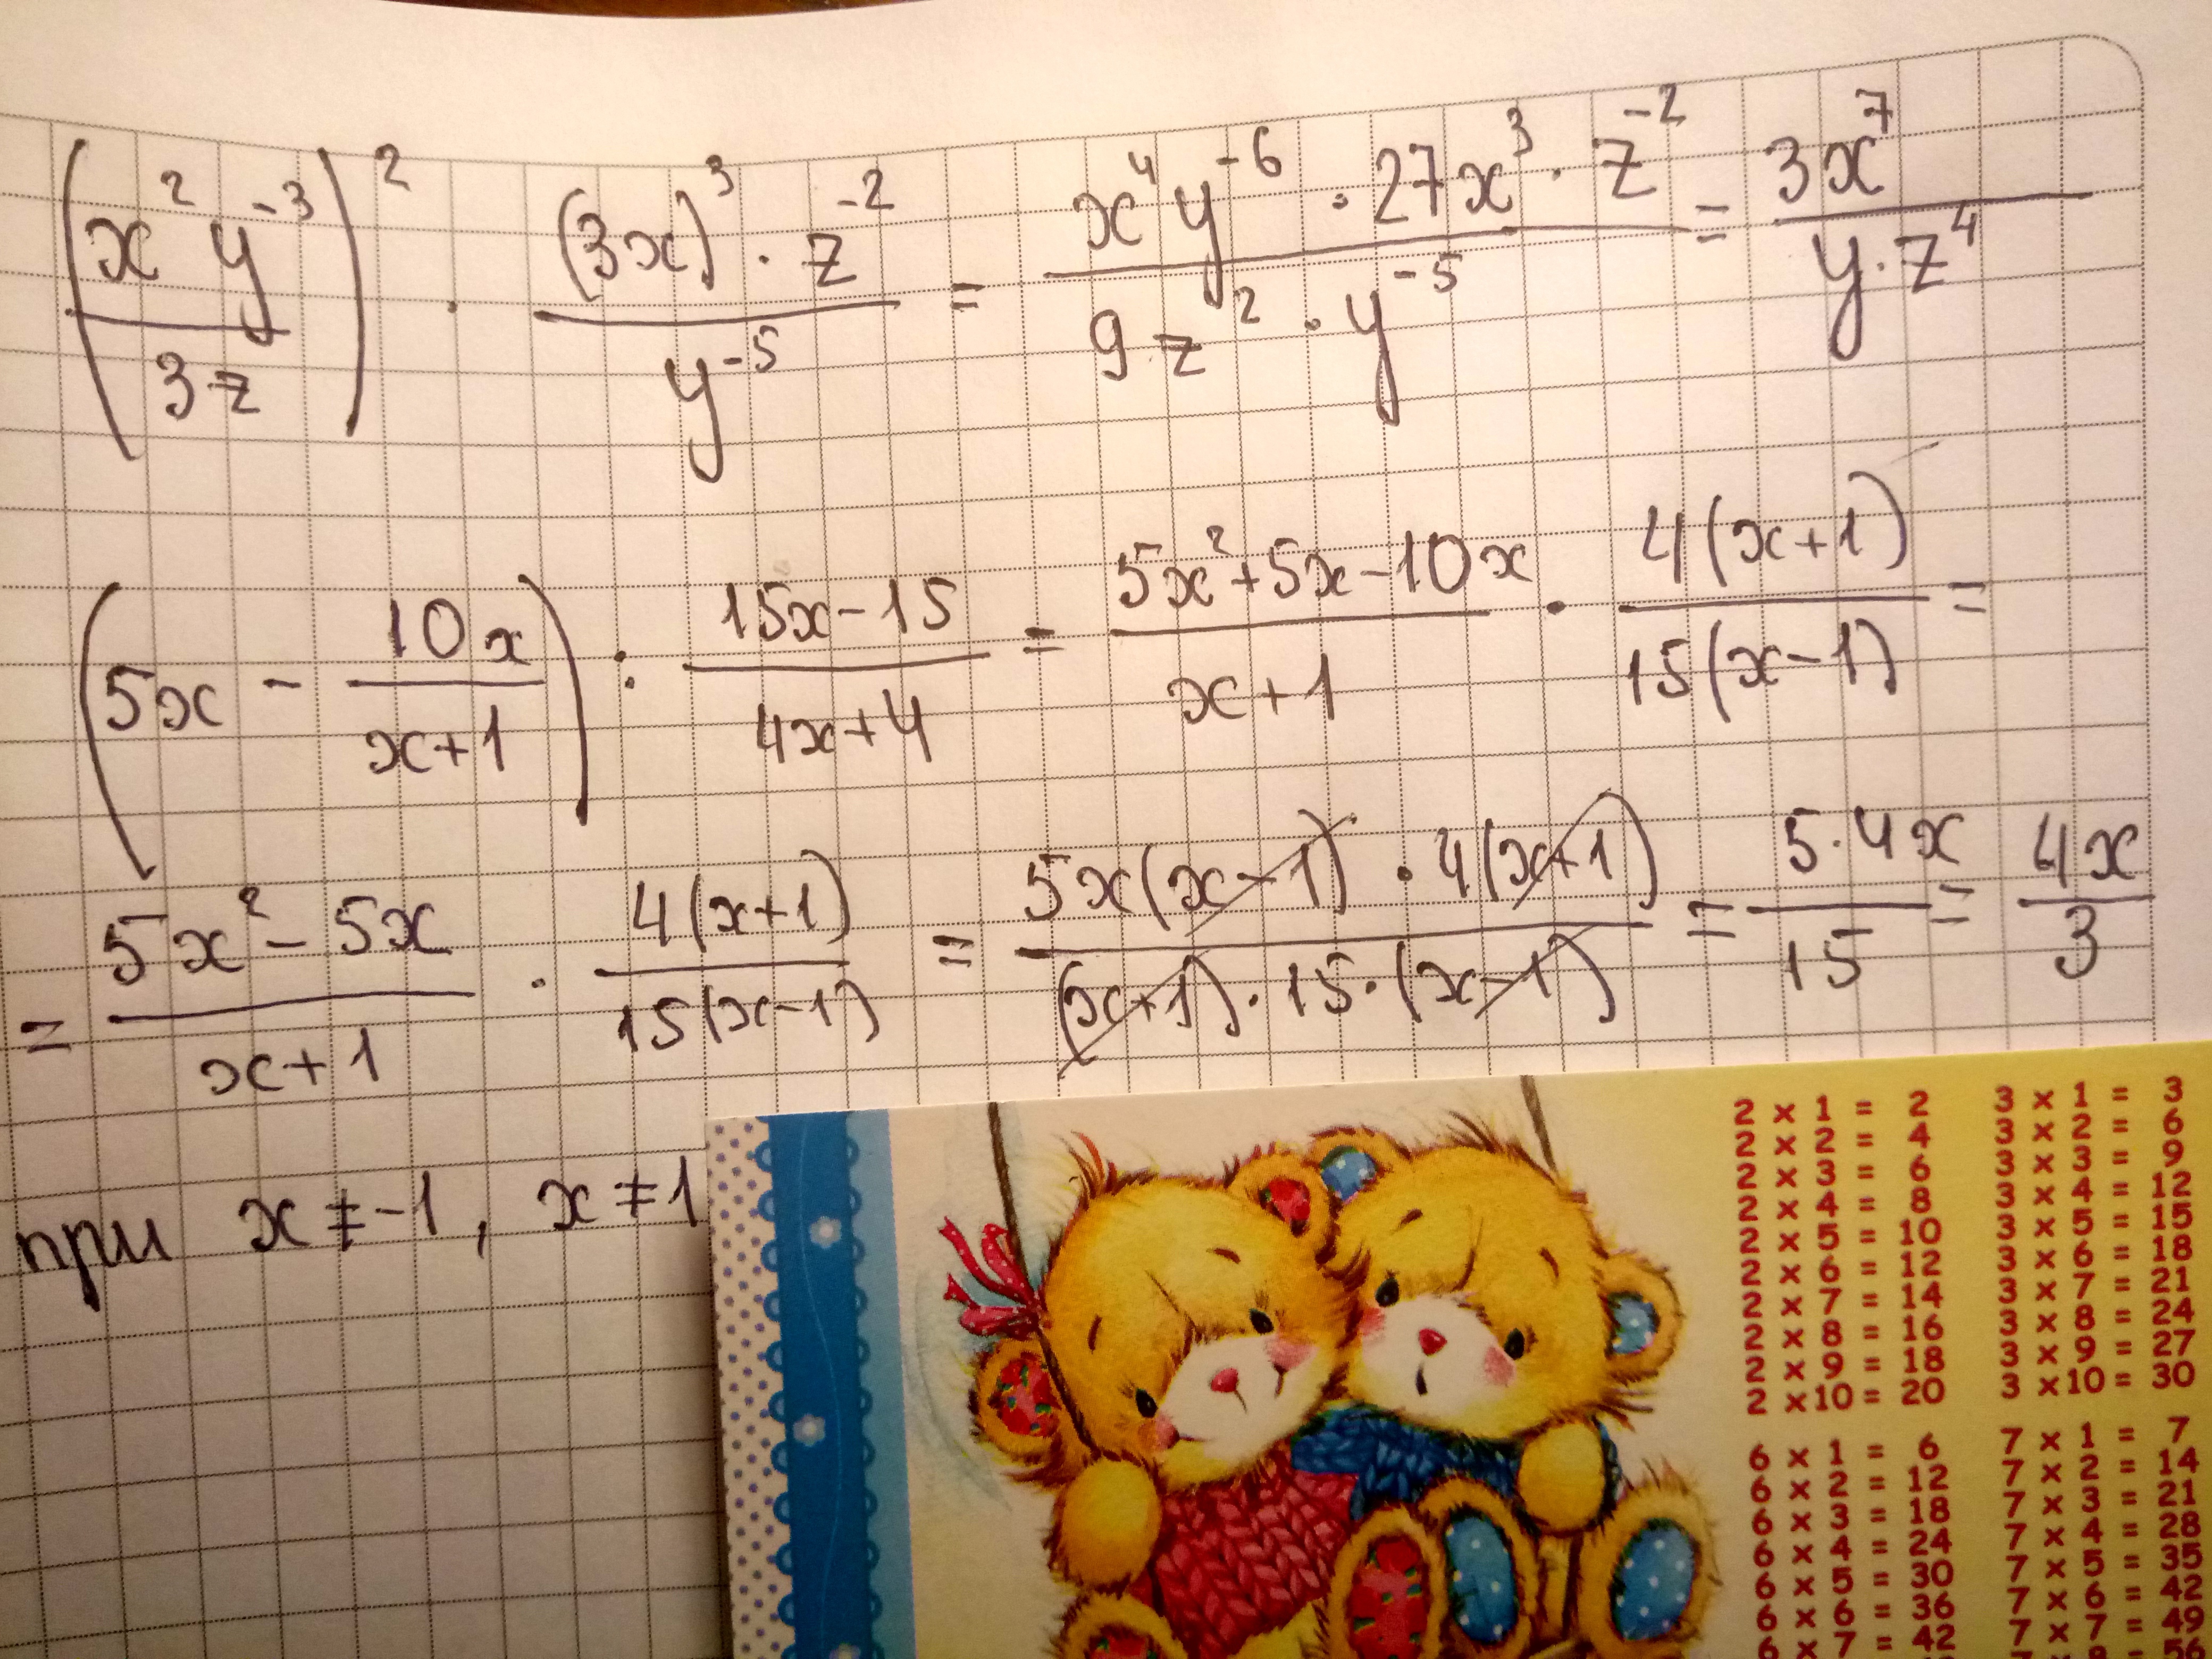 (x²y⁻³/3z)² · (3x)³·z⁻²/y⁻⁵ = x⁴y⁻⁶·27x³·z⁻²/9z²·y⁻⁵ = 3x⁷/y·z⁴
(5x - 10x/x+1) : 15x-15/4x+4 = 5x²+5x-10x/x+1 · 4(x+1)/15(x-1) =
= 5x²-5x/x+1 · 4(x+1)/15(x-1) = 5x(x-1)·4(x+1)/(x+1)·15·(x-1) = 5·4x/15 = 4x/3
при x≠-1, x≠1
2 x 1 = 2 3 x 1 = 3
2 x 2 = 4 3 x 2 = 6
2 x 3 = 6 3 x 3 = 9
2 x 4 = 8 3 x 4 = 12
2 x 5 = 10 3 x 5 = 15
2 x 6 = 12 3 x 6 = 18
2 x 7 = 14 3 x 7 = 21
2 x 8 = 16 3 x 8 = 24
2 x 9 = 18 3 x 9 = 27
2 x 10 = 20 3 x 10 = 30
6 x 1 = 6 7 x 1 = 7
6 x 2 = 12 7 x 2 = 14
6 x 3 = 18 7 x 3 = 21
6 x 4 = 24 7 x 4 = 28
6 x 5 = 30 7 x 5 = 35
6 x 6 = 36 7 x 6 = 42
6 x 7 = 42 7 x 7 = 49